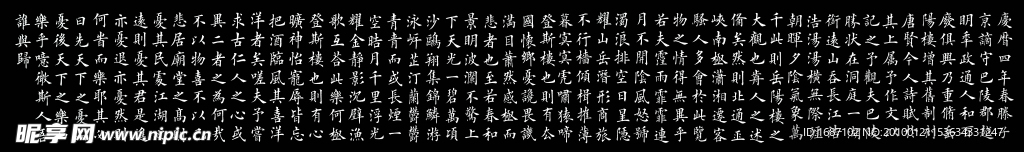 慶曆四年春滕子
京謫守巴陵郡越
明年政通人和百
廢俱興乃重修岳
陽樓增其舊制刻
唐賢今人詩賦於
其上屬予作文以
記之予觀夫巴陵
勝狀在洞庭一湖
銜遠山吞長江浩
浩湯湯橫無際涯
朝暉夕陰氣象萬
千此則岳陽樓之
大觀也前人之述
備矣然則北通巫
峽南極瀟湘遷客
騷人多會於此覽
物之情得無異乎
若夫霪雨霏霏連
月不開陰風怒號
濁浪排空日星隱
耀山岳潛形商旅
不行檣傾楫摧薄
暮冥冥虎嘯猿啼
登斯樓也則有去
國懷鄉憂讒畏譏
滿目蕭然感極而
悲者也至若春和
景明波瀾不驚上
下天光一碧萬頃
沙鷗翔集錦鱗游
泳岸芷汀蘭郁郁
青青而或長煙一
空皓月千里浮光
耀金靜影沉璧漁
歌互答此樂何極
登斯樓也則有心
曠神怡寵辱皆忘
把酒臨風其喜洋
洋者矣嗟夫予嘗
求古仁人之心或
異二者之為何哉
不以物喜不以己
悲居廟堂之高則
憂其民處江湖之
遠則憂其君是進
亦憂退亦憂然則
何時而樂耶其必
曰先天下之憂而
憂後天下之樂而
樂乎噫微斯人吾
誰與歸
昵享网 www.nipic.cn
ID:1687102 NO:20100121153634531247